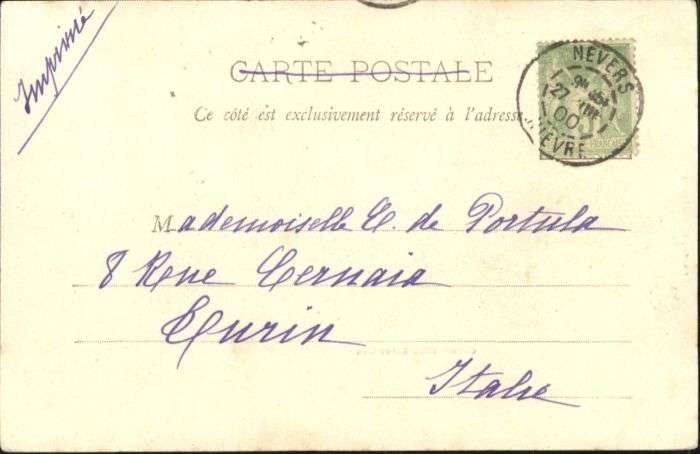 Imprimé
CARTE POSTALE
Ce côté est exclusivement réservé à l'adresse.
NEVERS
27
00
NIEVRE
Mademoiselle E. de Portula
8 Rue Cernaia
Turin
Italie